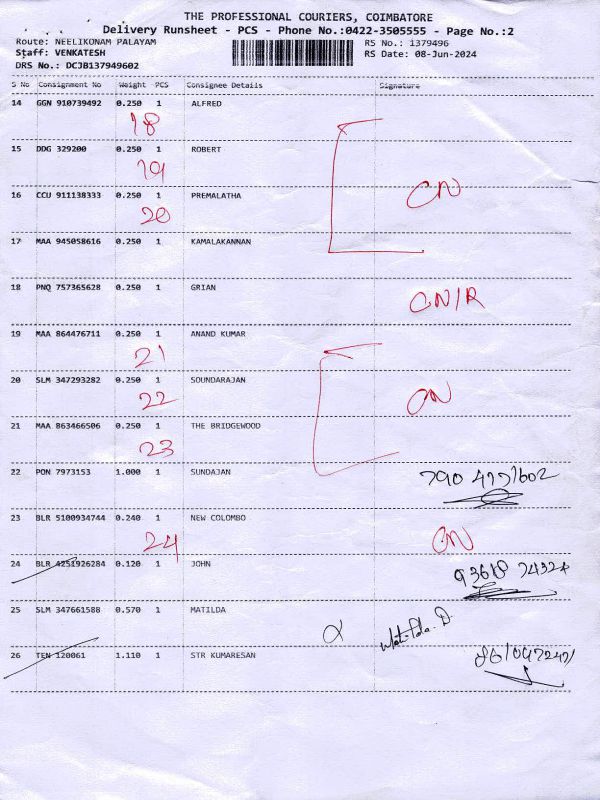 THE PROFESSIONAL COURIERS, COIMBATORE
Delivery Runsheet - PCS - Phone No.:0422-3505555 - Page No.:2
Route: NEELIKONAM PALAYAM RS No.: 1379496
Staff: VENKATESH RS Date: 08-Jun-2024
DRS No.: DCJB137949602
S No Consignment No Weight PCS Consignee Details Signature
14 GGN 910739492 0.250 1 ALFRED
18
15 DDG 329200 0.250 1 ROBERT
19
16 CCU 911138333 0.250 1 PREMALATHA
20 CN
17 MAA 945058616 0.250 1 KAMALAKANNAN
18 PNQ 757365628 0.250 1 GRIAN
CN/R
19 MAA 864476711 0.250 1 ANAND KUMAR
21
20 SLM 347293282 0.250 1 SOUNDARAJAN
22 CN
21 MAA 863466506 0.250 1 THE BRIDGEWOOD
23
22 PON 7973153 1.000 1 SUNDAJAN
23 BLR 5100934744 0.240 1 NEW COLOMBO
24 CN
24 BLR 4251926284 0.120 1 JOHN
25 SLM 347661588 0.570 1 MATILDA
Matilda. D
26 TEN 120061 1.110 1 STR KUMARESAN